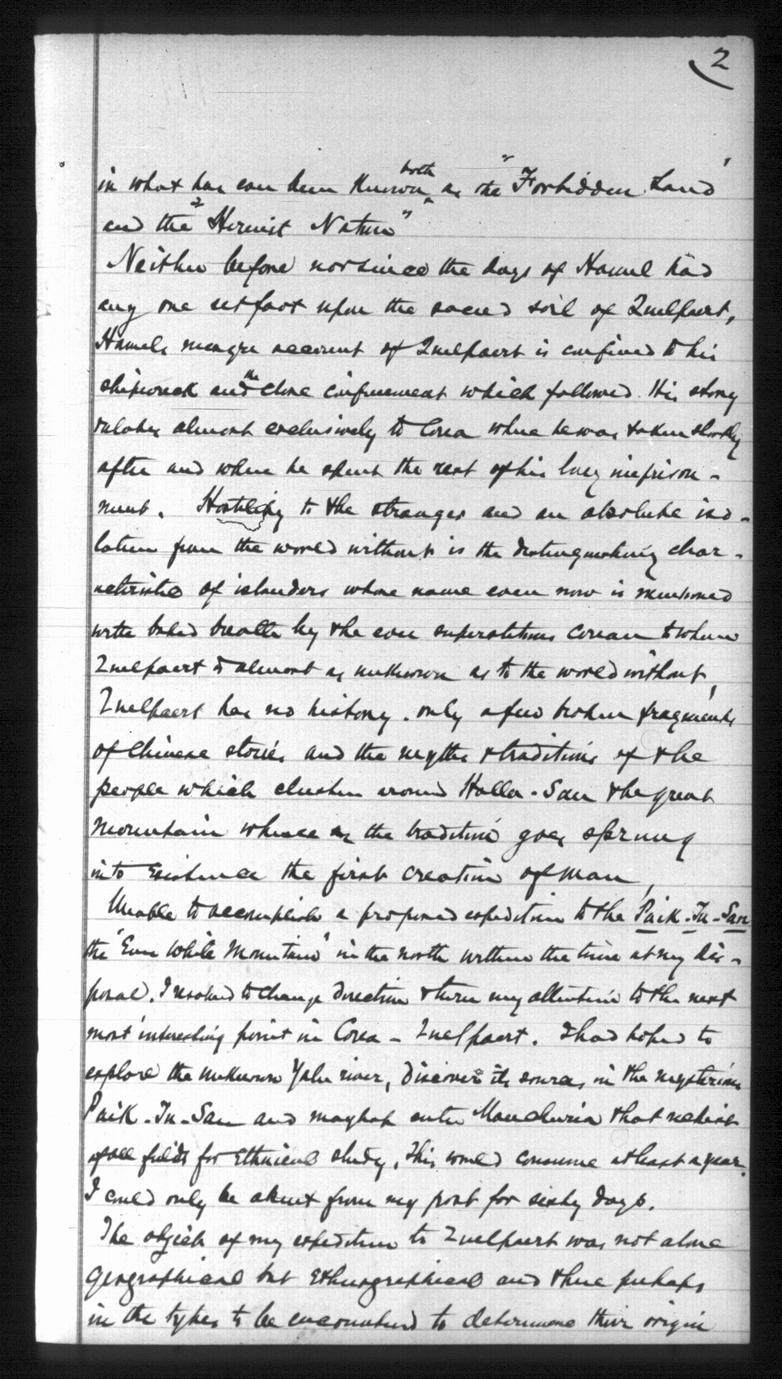 2
in what has ever been known both as the "Forbidden Land"
and the "Hermit Nation"
Neither before nor since the days of Hamel had
any one set foot upon the sacred soil of Quelpaert,
Hamels meagre account of Quelpaert is confined to his
shipwreck and the close confinement which followed. His story
relates almost exclusively to Corea where he was taken shortly
after and where he spent the rest of his long imprison-
ment. Hostility to the stranger and an absolute iso-
lation from the world without is the distinguishing char-
acteristic of islanders whose name even now is mentioned
with bated breath by the ever superstitious Corean to whom
Quelpaert is almost as unknown as to the world without,
Quelpaert has no history. only a few broken fragments
of Chinese stories and the myths & traditions of the
people which cluster around Halla-San the great
mountain whence as the tradition goes sprung
into existence the first creation of man,
Unable to accomplish a proposed expedition to the Paik-Tu-San
the "Ever White Mountain" in the north within the time at my dis-
posal, I resolved to change direction & turn my attention to the next
most interesting point in Corea - Quelpaert. I had hoped to
explore the unknown Yalu river, discover its source, in the mysterious
Paik-Tu-San and mayhap enter Manchuria that richest
of all fields for Ethnical study, This would consume at least a year.
I could only be absent from my post for sixty days.
The object of my expedition to Quelpaert was not alone
geographical but Ethnographical and there perhaps
in the types to be encountered to determine their origin